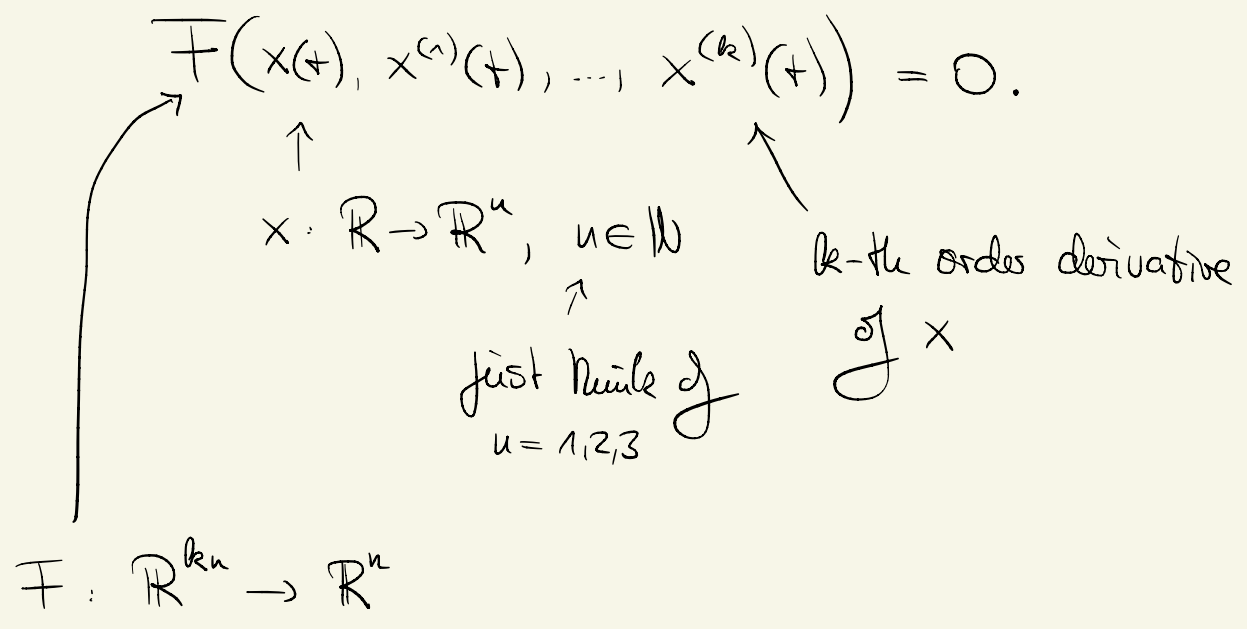 F(x(t), x⁽¹⁾(t), ..., x⁽ᵏ⁾(t)) = 0.
x : ℝ → ℝⁿ, n ∈ ℕ
k-th order derivative
of x
just think of
n = 1,2,3
F : ℝᵏⁿ → ℝⁿ